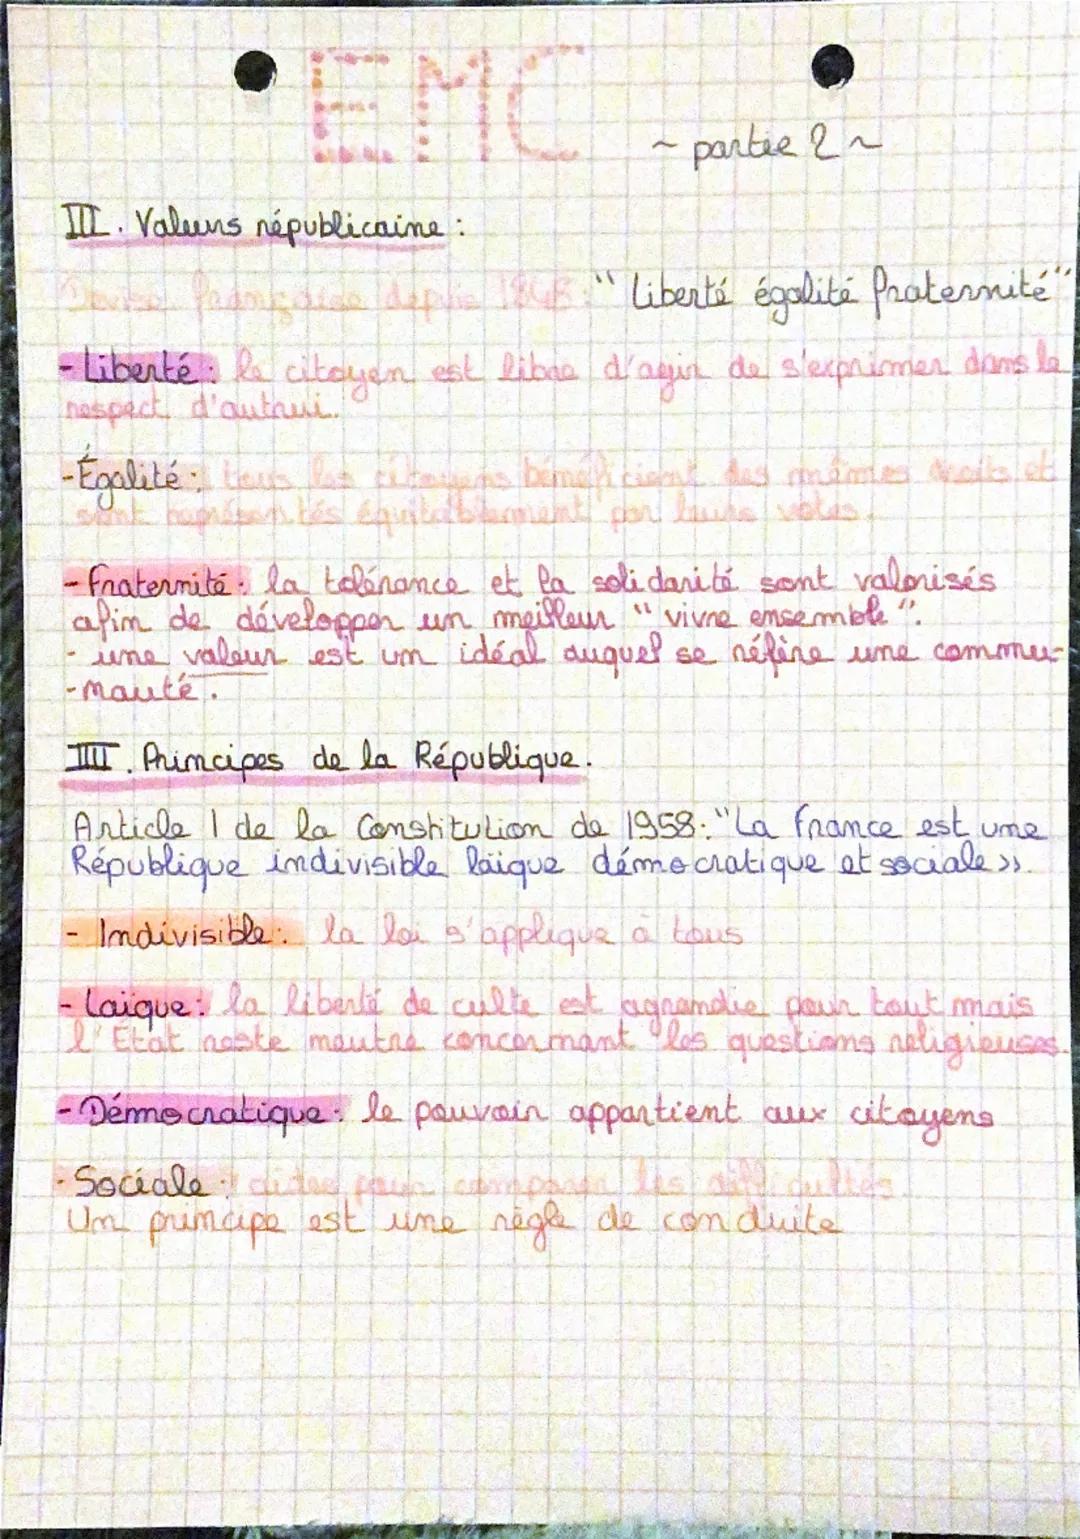 EMC
~ partie 2 ~
III. Valeurs républicaine :
Devise française depuis 1848 : " Liberté égalité fraternité"
- Liberté : le citoyen est libre d'agir de s'exprimer dans le
respect d'autrui.
- Égalité : tous les citoyens bénéficient des mêmes droits et
sont représentés équitablement par leurs votes.
- Fraternité : la tolérance et la solidarité sont valorisés
afin de développer un meilleur " vivre ensemble ".
- une valeur est un idéal auquel se réfère une commu-
-nauté.
IIII. Principes de la République.
Article 1 de la Constitution de 1958 : "La France est une
République indivisible laïque démocratique et sociale ».
- Indivisible : la loi s'applique à tous
- Laïque : la liberté de culte est agrandie pour tout mais
l'État reste neutre concernant les questions religieuses.
- Démocratique : le pouvoir appartient aux citoyens
- Sociale : aides pour comparer les difficultés
Un principe est une règle de conduite